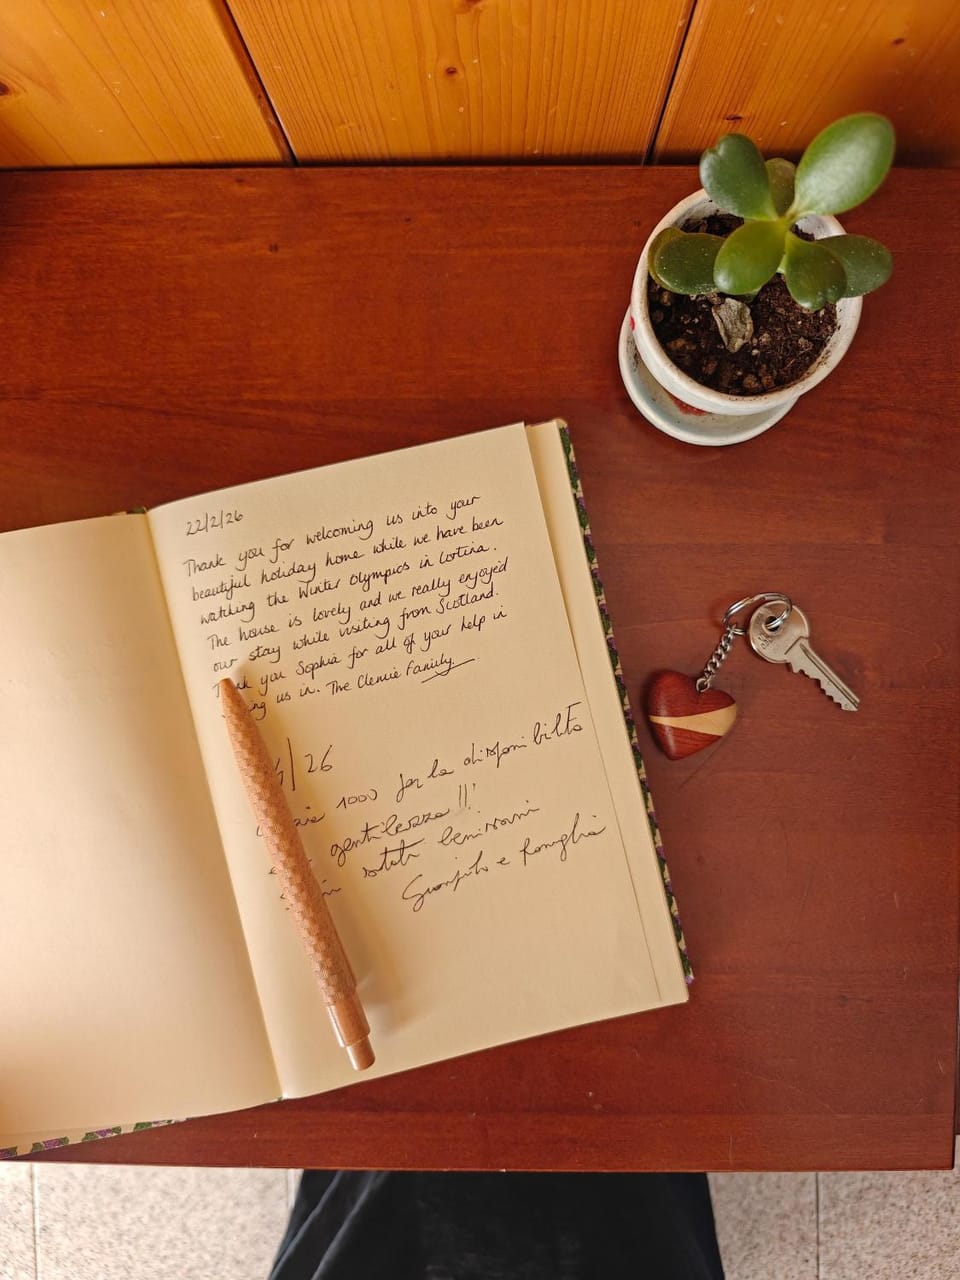 22/2/26
Thank you for welcoming us into your
beautiful holiday home while we have been
watching the Winter Olympics in Cortina.
The house is lovely and we really enjoyed
our stay while visiting from Scotland.
you Sophia for all of your help in
us in. The Clewie Family
/26
1000 per la disponibilità
gentilezza !!!
stati benissimo
e famiglia